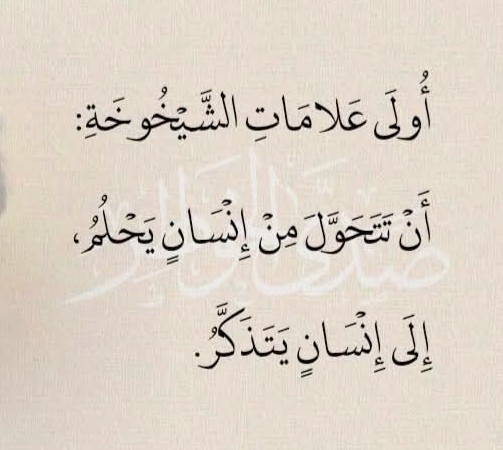 أُولَى عَلَامَاتِ الشَّيْخُوخَةِ:
أَنْ تَتَحَوَّلَ مِنْ إِنْسَانٍ يَحْلُمُ،
إِلَى إِنْسَانٍ يَتَذَكَّرُ.